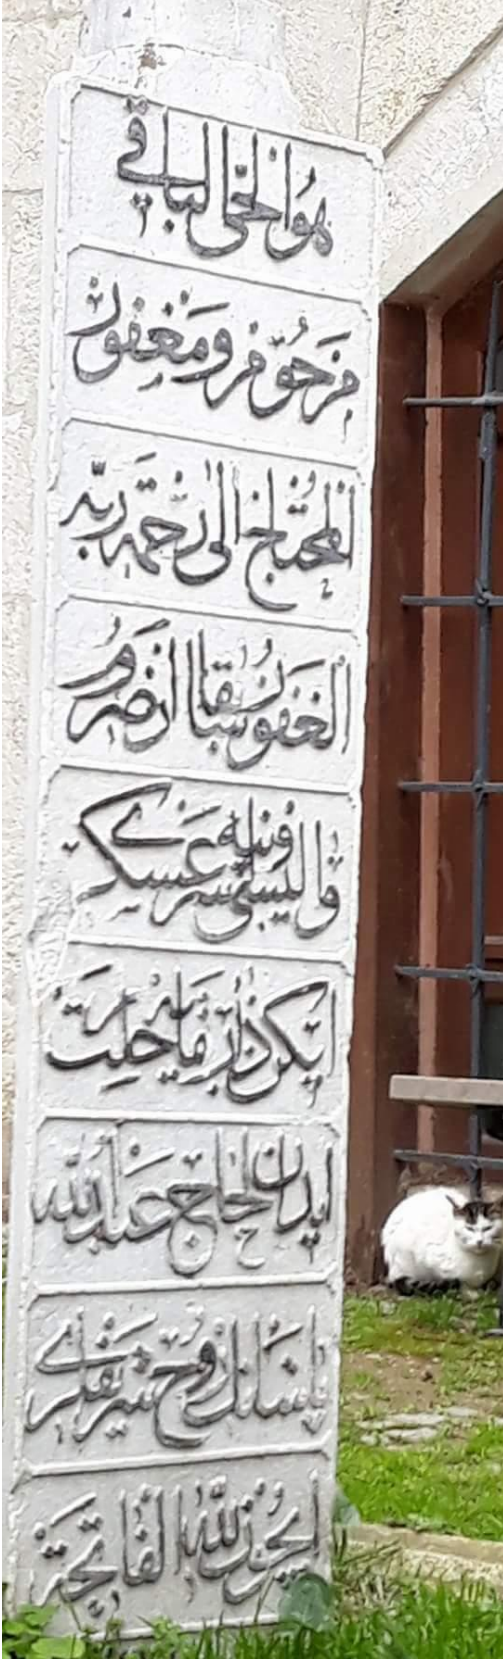 هو الحي الباقي
مرحوم ومغفور
المحتاج الى رحمة ربه
الغفور سابقا ارضروم
واليسى سر عسكرى
ايكن دار بقايه رحلت
ايدن الحاج عبد الله
پاشانك روح شريفلرى
ايچون لله الفاتحة